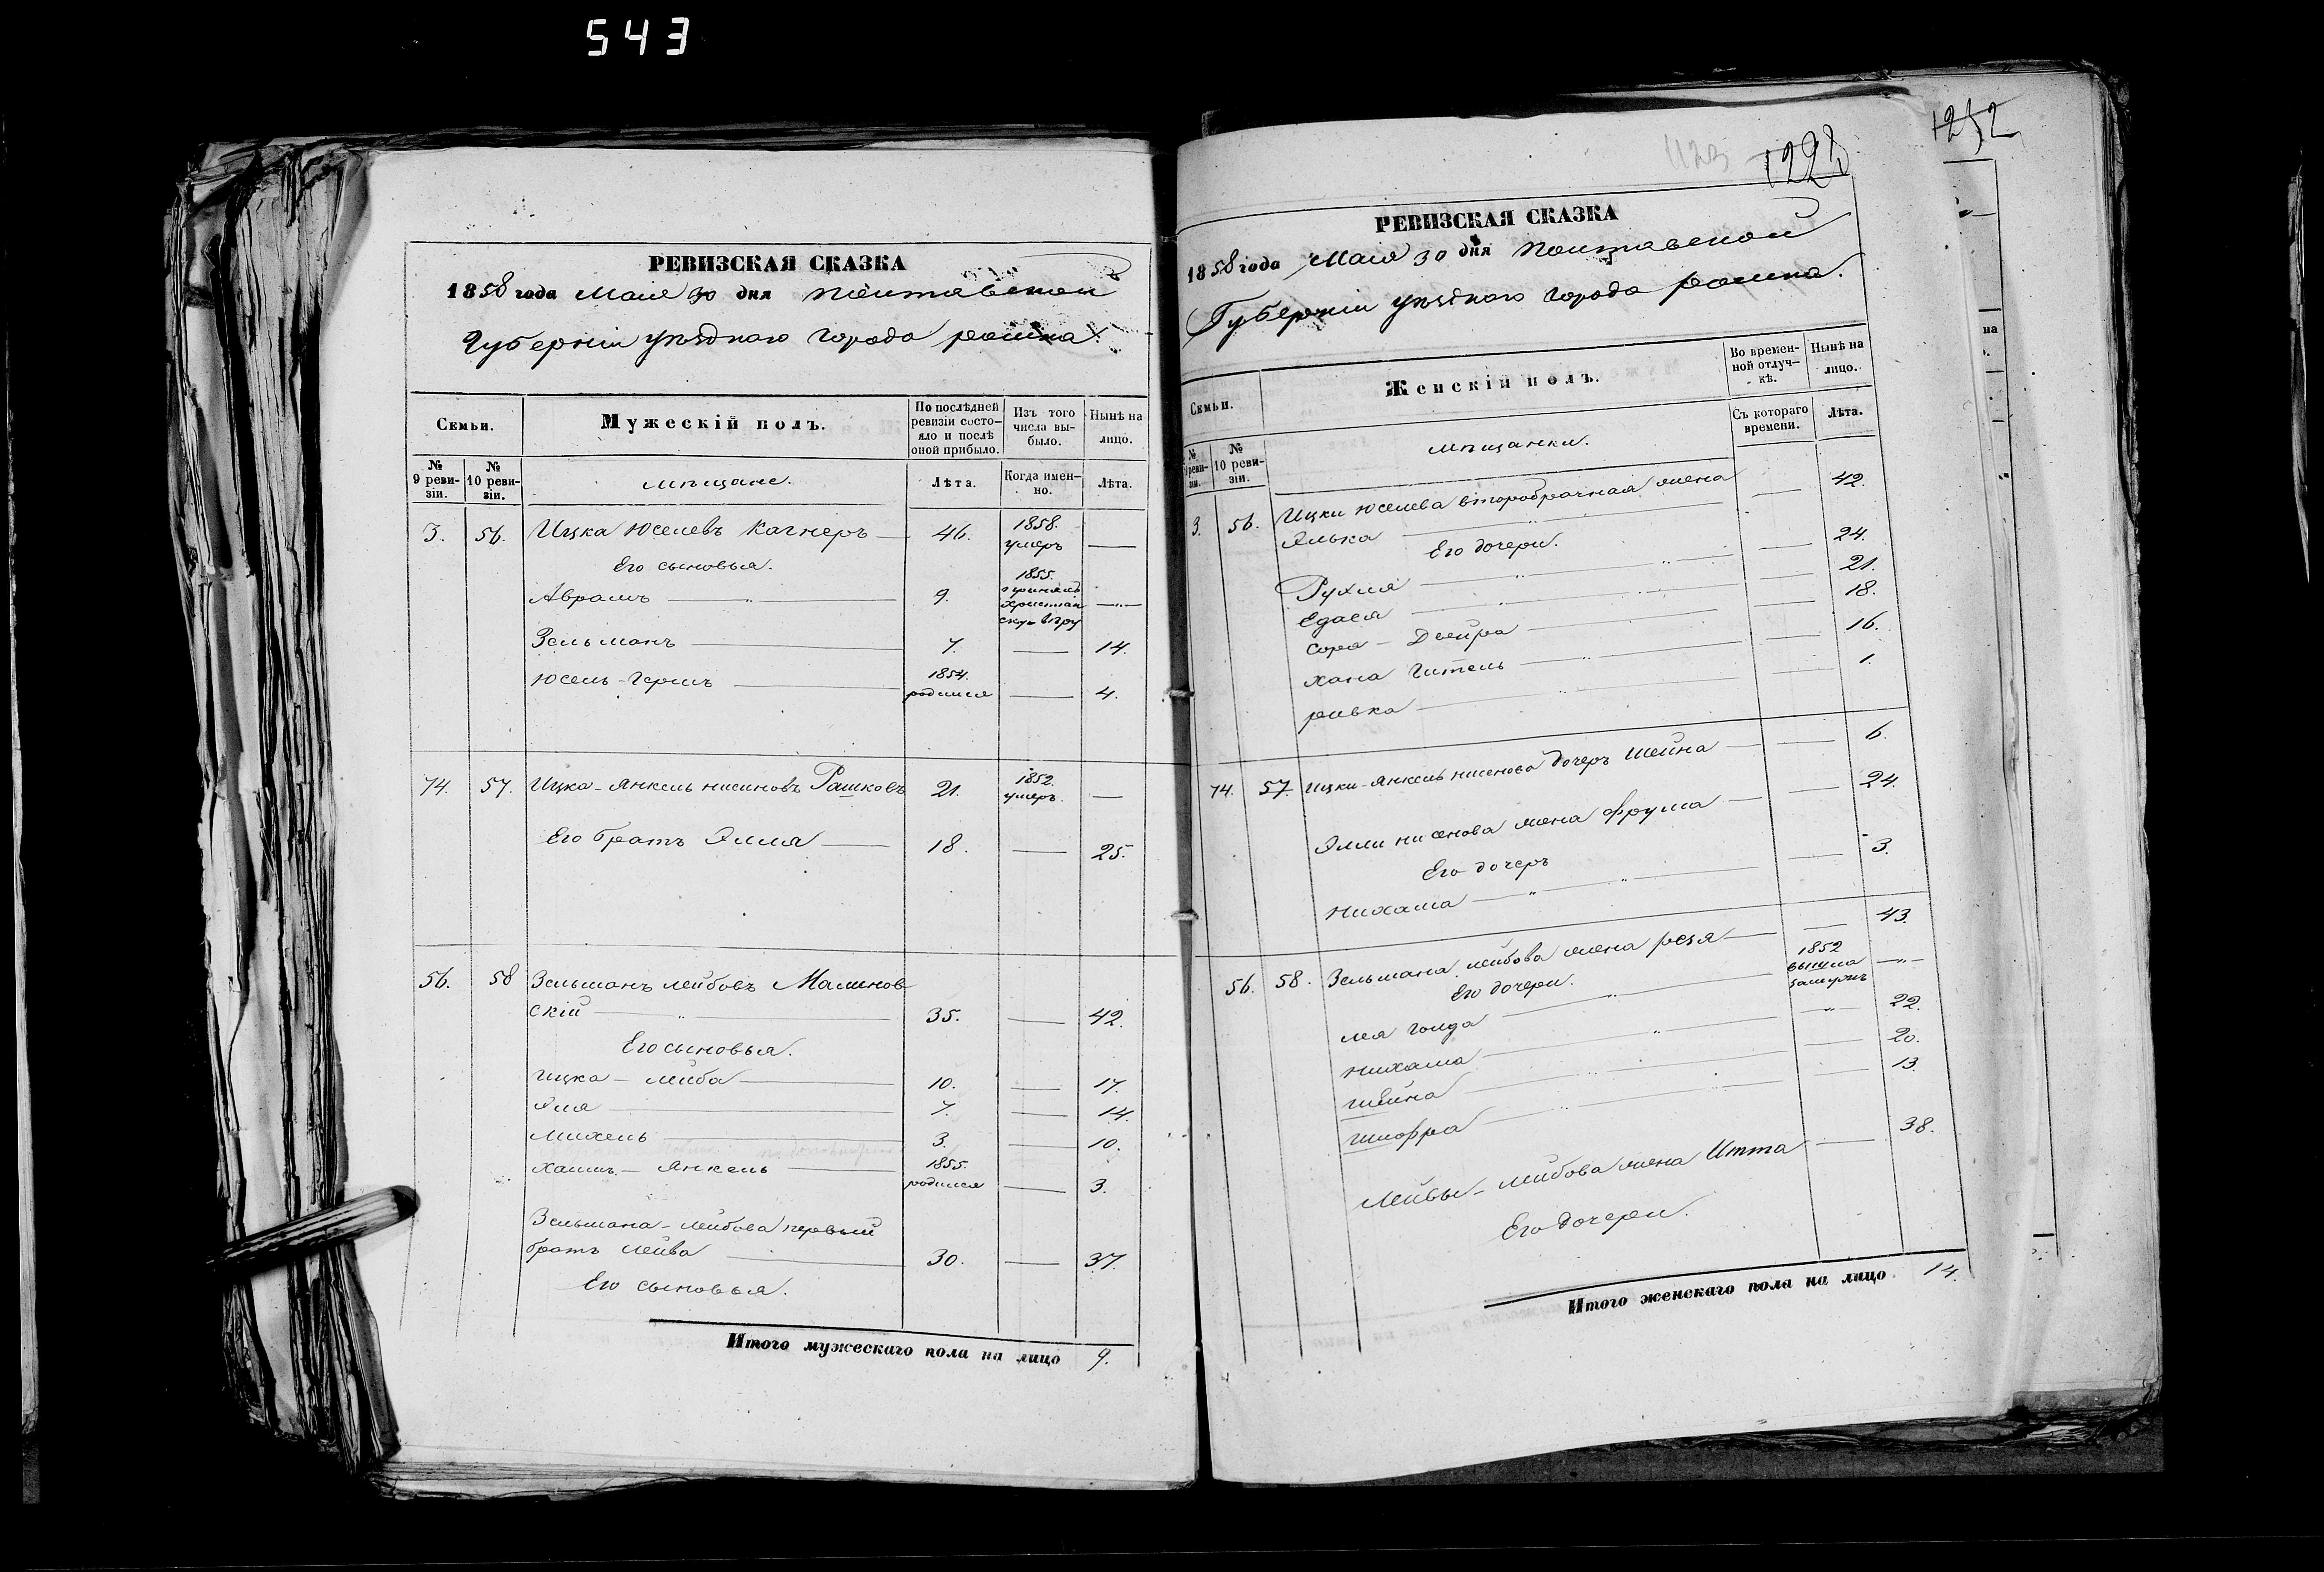 543
РЕВИЗСКАЯ СКАЗКА
1858 года Маія 30 дня Полтавской
Губерніи уѣзднаго города ромна.
Семьи.
Мужескій полъ.
По послѣдней ревизіи состояло и послѣ оной прибыло.
Изъ того числа выбыло.
Нынѣ на лицо.
№ 9 ревизіи.
№ 10 ревизіи.
мѣщане.
Лѣта.
Когда именно.
Лѣта.
3. 56. Ицка Юселевъ Кагнеръ 46. 1858. умеръ —
Его сыновья.
Абрамъ 9. 1855. принялъ христіанскую вѣру —
Зельманъ 7. — 14.
Юсель-Гершъ 1854. родился — 4.
74. 57. Ицка-Янкель нисиновъ Рашковъ 21. 1852. умеръ. —
Его братъ Элля 18. — 25.
56. 58 Зельманъ лейбовъ Малинов-
скій 35. — 42.
Его сыновья.
Ицка-лейба 10. — 17.
Эля 7. — 14.
Михель 3. — 10.
Хаимъ-Янкель 1855. родился — 3.
Зельмана-лейбова первый
братъ Лейва 30. — 37.
Его сыновья.
Итого мужескаго пола на лицо 9.
1123
1228
РЕВИЗСКАЯ СКАЗКА
1858 года Маія 30 дня Полтавской
Губерніи уѣзднаго города ромна.
Семьи.
Женскій полъ.
Во временной отлучкѣ.
Нынѣ на лицо.
№ 9 ревизіи.
№ 10 ревизіи.
мѣщанки.
Съ котораго времени.
Лѣта.
3. 56. Ицки Юселева второбрачная жена
Элька — 42.
Его дочери.
Рухля — 24.
Едася — 21.
Сора-Двейра — 18.
Хана Гитель — 16.
ривка — 1.
74. 57. Ицки-Янкель нисенова дочеръ Шейна — 6.
Элли нисенова жена Фрума — 24.
Его дочеръ
Нихама — 3.
56. 58. Зельмана лейбова жена реза — 43.
Его дочери.
лея голда 1852 вышла замужъ —
нихама — 22.
20.
Шифра — 13.
Лейвы-лейбова жена Итта — 38.
Его дочери.
Итого женскаго пола на лицо 14.
1252
на